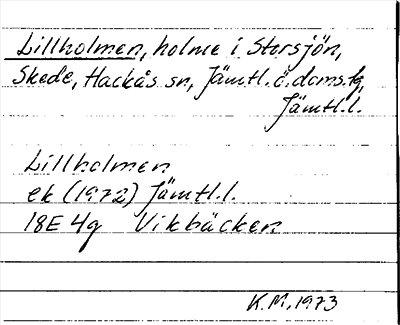 Lillholmen, holme i Storsjön,
Skede, Hackås sn, Jämtl. ö. doms. tg,
Jämtl. l.
Lillholmen
ek (1972) Jämtl. l.
18E 4g Vikbäcken
K.M. 1973